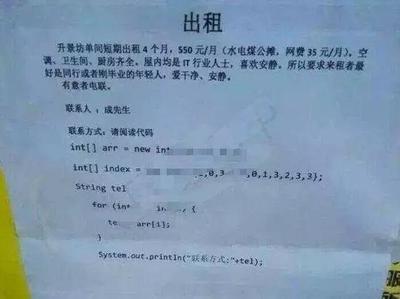 出租
升景坊单间短期出租 4 个月，550 元/月（水电煤公摊，网费 35 元/月），空
调、卫生间、厨房齐全。屋内均是 IT 行业人士，喜欢安静。所以要求来租者最
好是同行或者刚毕业的年轻人，爱干净、安静。
有意者电联。
联系人：成先生
联系方式：请阅读代码
int[] arr = new int
int[] index = ,0,3 ,0,1,3,2,3,3};
String tel
for (int {
te arr[i];
}
System.out.println("联系方式:"+tel);